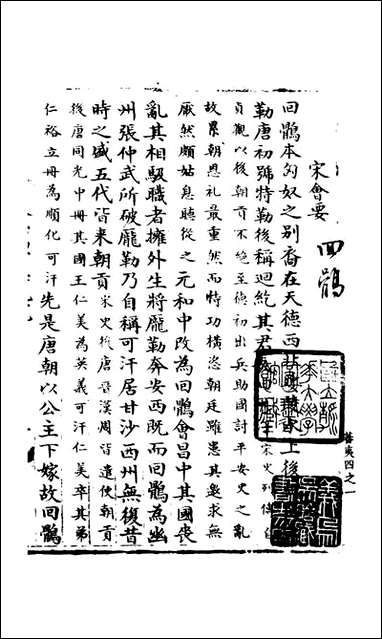 宋會要
回鶻
回鶻本匈奴之別裔在天德西上後
勒唐初號特勒後稱迴紇其君宋史列傳自
貞觀以後朝貢不絕至德初出兵助國討平安史之亂
故累朝恩礼最重然而特功橫恣朝廷雖患其邀求無
厭然頗姑息聽從之元和中改為回鶻會昌中其國喪
亂其相馺職者擁外生將龐勒奔安西既而回鶻為幽
州張仲武所破龐勒乃自稱可汗居甘沙西州無復昔
時之盛五代皆来朝貢宋史後唐晉漢周皆遣使朝貢
後唐同光中冊其國王仁美為英義可汗仁美卒其弟
仁裕立冊為順化可汗先是唐朝以公主下嫁故回鶻
蕃夷四之一